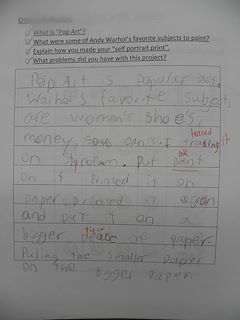 What is "Pop Art"?
What were some of Andy Warhol's favorite subjects to paint?
Explain how you made your "self portrait print".
What problems did you have with this project?
Pop Art is popular art.
Warhol's favorite subjects
are women's shoe's,
traced
money, soup can's. I it
on Styrofoam. Put paint
ink
on it Printed it on
paper printed it agan
and put it on a
piece
bigger peace of paper.
Puting the smaller paper
on the bigger paper.